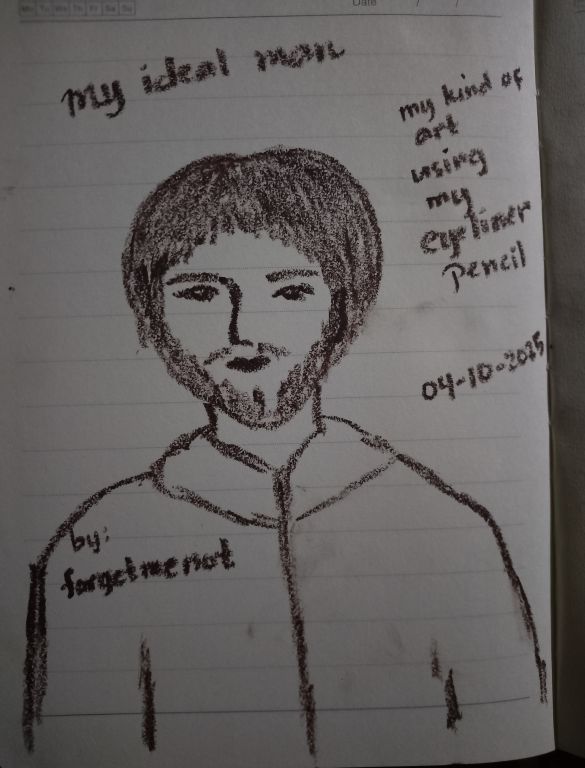 Mo Tu We Th Fr Sa Su
Date / /
my ideal man
my kind of
art
using
my
eyeliner
pencil
04-10-2025
by:
forget me not